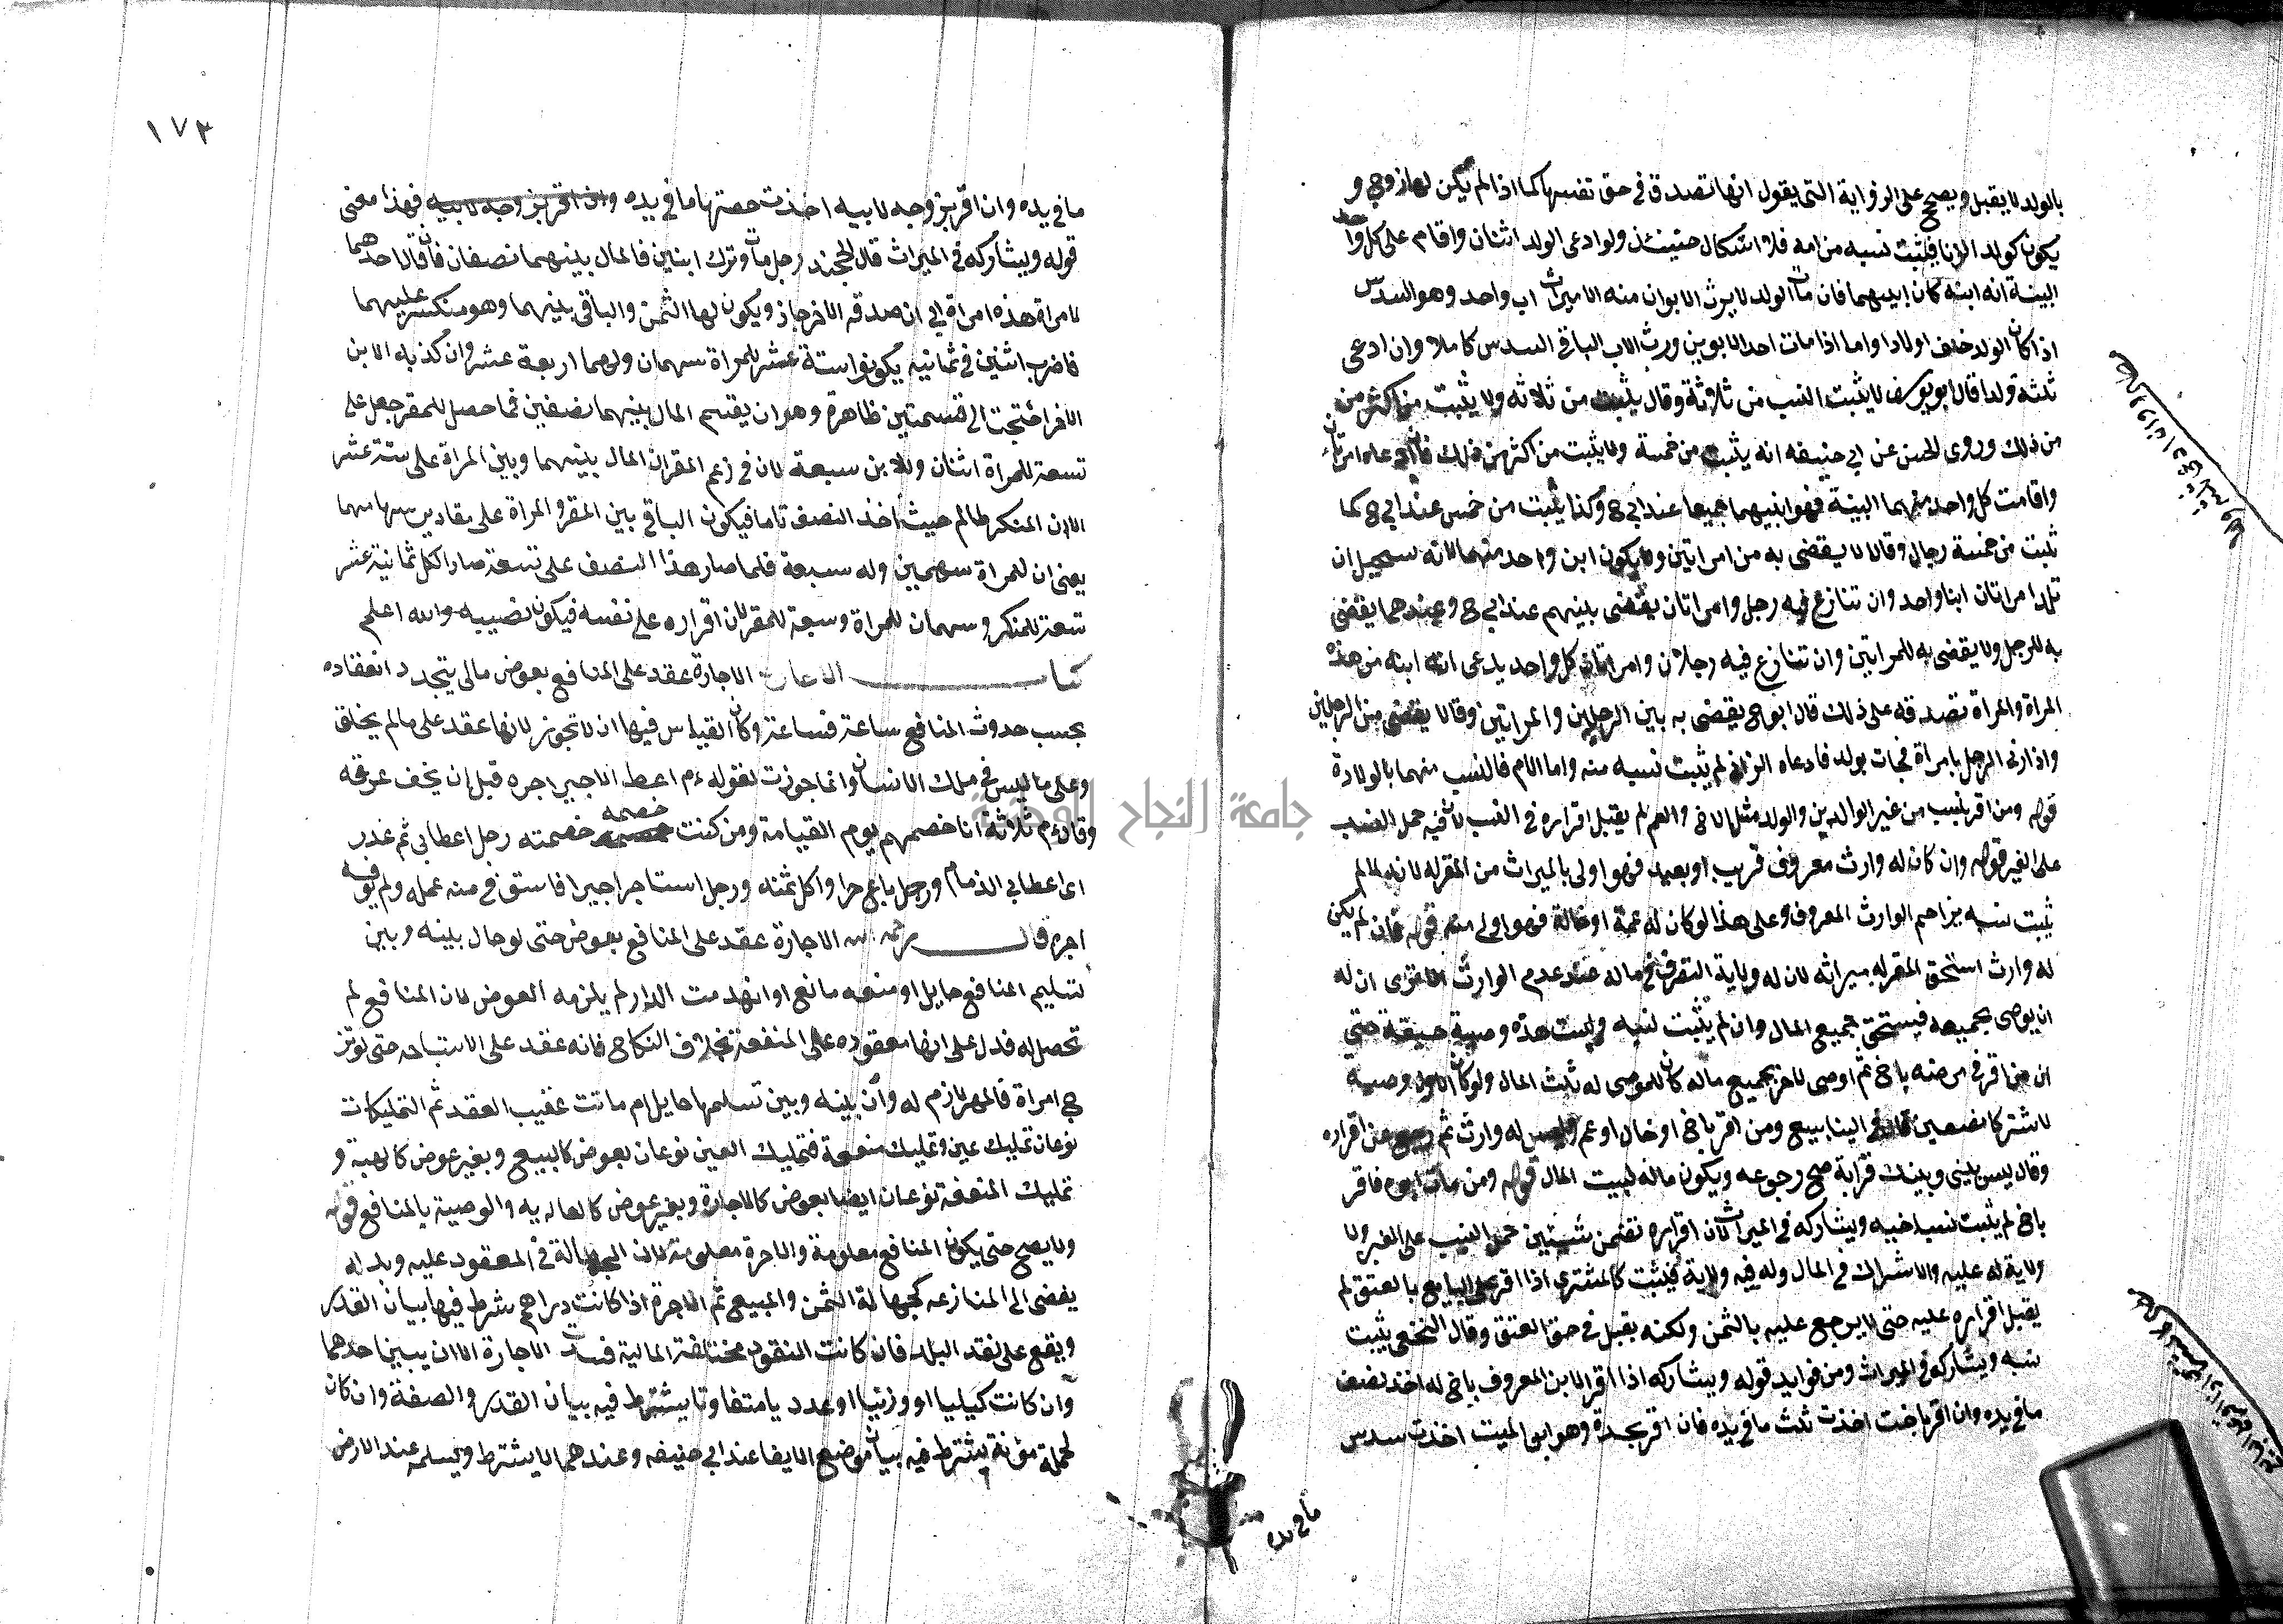 بالولد لا يقبل ويصح على الرواية التي يقول انها تصدق في حق نفسها كما اذا لم يكن لها زوج و
يكون كولد الزنا فيثبت نسبه من امه فلا اشكال حينئذ ولو ادعى الولد اثنان واقام على كل واحد
البينة انه ابنه كان ابنهما فان مات الولد لا يرث الابوان منه الا ميراث اب واحد وهو السدس
اذا كان الولد خلف اولادا واما اذا مات احد الابوين ورث الاب الباقي السدس كاملا وان ادعى
ثلثة ولدا قال ابو يوسف لا يثبت النسب من ثلاثة وقال يثبت من ثلاثه ولا يثبت من اكثر من
من ذلك وروى الحسن عن ابي حنيفه انه يثبت من خمسة ولا يثبت من اكثر من ذلك فان ادعاه امراتان
واقامت كل واحد منهما البينة فهو ابنهما جميعا عند ابي ح وكذا يثبت من خمس عند ابي ح كما
ثبت من خمسة رجال وقالا لا يقضى به من امراتين ولا يكون ابن واحد منهما لانه يستحيل ان
تلد امراتان ابنا واحد وان تنازع فيه رجل وامراتان يقضى بينهم عند ابي ح وعندهما يقضى
به للرجل ولا يقضى به للمراتين وان تنازع فيه رجلان وامراتان كل واحد يدعى انه ابنه من هذه
المراة والمراة تصدقه على ذلك قال ابو ح يقضى به بين الرجلين والمراتين وقالا يقضى بين الرجلين
واذا زنى الرجل بامراة فجات بولد فادعاه الزاني لم يثبت نسبه منه واما الام فالنسب منهما بالولادة
قوله ومن اقر بنسب من غير الوالدين والولد مثل الاخ والعم لم يقبل اقراره في النسب لان فيه حمل النسب
على الغير قوله وان كان له وارث معروف قريب او بعيد فهو اولى بالميراث من المقر له لانه لما لم
يثبت نسبه يزاحم الوارث المعروف وعلى هذا لو كان له عمة او خالة فهو اولى منه قوله فان لم يكن
له وارث استحق المقر له ميراثه لان له ولاية التصرف في ماله عند عدم الوارث الا ترى ان له
ان يوصى بجميعه فيستحق جميع المال وان لم يثبت نسبه وليست هذه وصية حقيقة حتى
ان من اقر في مرضه باخ ثم اوصى لاخر بجميع ماله كان للموصى له ثلث المال ولو كان الاول وصية
لاشتركا نصفين قال في الينابيع ومن اقر باخ او خال او عم وليس له وارث ثم رجع عن اقراره
وقال ليس بيني وبينك قرابة صح رجوعه ويكون ماله لبيت المال قوله ومن مات ابوه فاقر
باخ لم يثبت نسب اخيه ويشاركه في الميراث لان اقراره تضمن شيئين حمل النسب على الغير ولا
ولاية له عليه والاشراك في المال وله فيه ولاية فيثبت كالمشتري اذا اقر على البايع بالعتق لم
يقبل اقراره عليه حتى لا يرجع عليه بالثمن ولكنه يقبل في حق العتق وقال النخعي يثبت
نسبه ويشاركه في الميراث ومن فوايد قوله ويشاركه اذا اقر الابن المعروف باخ له اخذ نصف
ما في يده وان اقر باخت اخذت ثلث ما في يده فان اقر بجدة وهو ابو الميت اخذت سدس
ما في يده
١٧٣
ما في يده وان اقر بزوجه لابيه اخذت حصتها ما في يده وان اقر بزوجه لابيه فهذا معنى
قوله ويشاركه في الميراث قال الخجندي رجل مات وترك ابنين فالمال بينهما نصفان فان قال احدهما
لامراة هذه امراة ابي ان صدقه الاخر جاز ويكون لها الثمن والباقي بينهما وهو منكسر عليهما
فاضرب اثنين في ثمانيه يكون ستة عشر للمراة سهمان ولهما اربعة عشر وان كذبه الابن
الاخر احتجت الى قسمتين ظاهرة وهو ان يقسم المال بينهما نصفين فما حصل للمقر جعل على
تسعة للمراة اثنان وللابن سبعة لان في زعم المقر ان المال بينهما وبين المراة على ستة عشر
الا ان المنكر ظالم حيث اخذ النصف تاما فيكون الباقي بين المقر والمراة على مقادير سهامهما
يعنى ان للمراة سهمين وله سبعة فلما صار هذا النصف على تسعة صار الكل ثمانية عشر
تسعة للمنكر وسهمان للمراة وسبعة للمقر لان اقراره على نفسه فيكون نصيبه والله اعلم
كتاب الاجارة عقد على المنافع بعوض مالى يتجدد انعقاده
بحسب حدوث المنافع ساعة فساعة وكان القياس فيها ان لا تجوز لانها عقد على ما لم يخلق
وعلى ما ليس في ملك الانسان وانما جوزت لقوله عم اعط الاجير اجره قبل ان يجف عرقه
وقال عم ثلاثة انا خصمهم يوم القيامة ومن كنت خصمه خصمته رجل اعطا بي ثم غدر
اى اعطا بي الذمام ورجل باع حرا واكل ثمنه ورجل استاجر اجيرا فاستوفى منه عمله ولم يوفه
اجره قال رحمه الله الاجارة عقد على المنافع بعوض حتى لو حال بينه وبين
تسليم المنافع حايل او منعه مانع او انهدمت الدار لم يلزمه العوض لان المنافع لم
تحصل له فدل على انها معقوده على المنفعة بخلاف النكاح فانه عقد على الاستباحه حتى لو تزو
ج امراة فالمهر لازم له وان بينه وبين تسلمها حايل ام ماتت عقيب العقد ثم التمليكات
نوعان تمليك عين وتمليك منفعة فتمليك العين نوعان بعوض كالبيع وبغير عوض كالهبة و
تمليك المنفعة نوعان ايضا بعوض كالاجارة وبغير عوض كالعاريه والوصية بالمنافع قوله
ولا يصح حتى يكون المنافع معلومة والاجرة معلومة لان الجهالة في المعقود عليه وبدله
يفضى الى المنازعه كجهالة الثمن والمبيع ثم الاجرة اذا كانت دراهم شرط فيها بيان القدر
ويقع على نقد البلد فان كانت النقود مختلفة المالية فسدت الاجارة الا ان يبين احدهما
وان كانت كيليا او وزنيا او عدديا متفاوتا يشترط فيه بيان القدر والصفة وان كان
لحمله مؤنة يشترط فيه بيان موضع الايفا عند ابي حنيفه وعندهما لا يشترط ويسلمه عند الارض
جامعة النجاح الوطنية